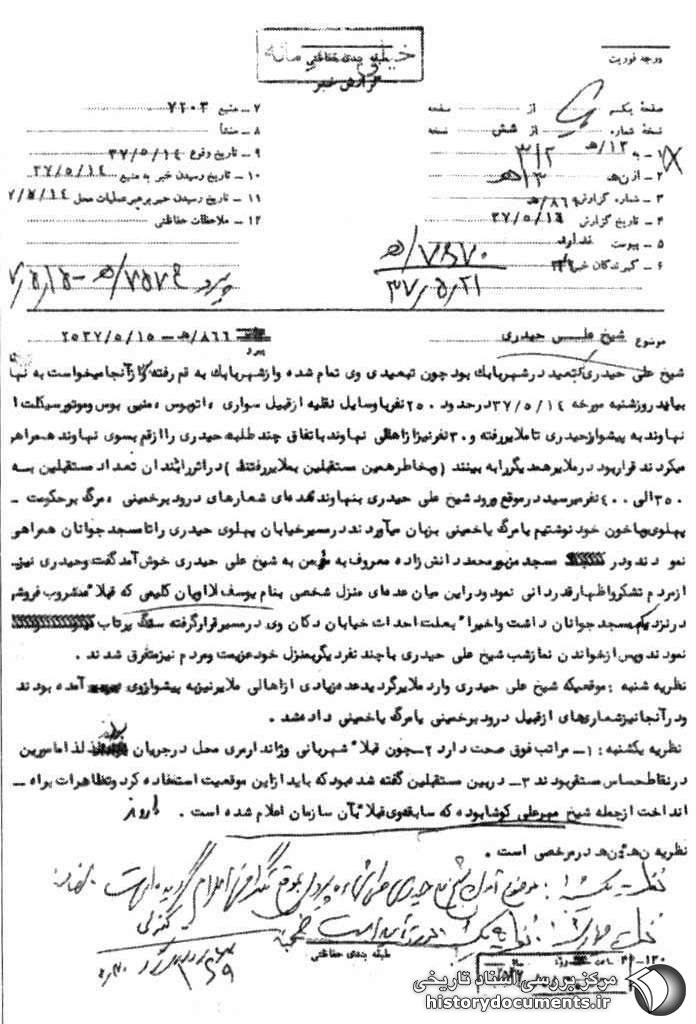 خیلی محرمانه
طبقه بندی حفاظتی
گزارش خبر
درجه فوریت
صفحه یکم از صفحه
نسخه شماره از شش نسخه
۱ـ به ۳۱۲
۲ـ از ن ﻫ ۱۳ ﻫ
۳ـ شماره گزارش ۸۶۶/ﻫ
۴ـ تاریخ گزارش ۳۷/۵/۱۵
۵ـ پیوست ندارد
۶ـ گیرندگان خبر
۷ـ منبع ۷۲۰۳
۸ـ منشأ
۹ـ تاریخ وقوع ۳۷/۵/۱۴
۱۰ـ تاریخ رسیدن خبر به منبع ۳۷/۵/۱۴
۱۱ـ تاریخ رسیدن خبر برهبر عملیات محل ۷/۵/۱۴
۱۲ـ ملاحظات حفاظتی
۳۷/۵/۲۱
موضوع شیخ علی حیدری
۸۶۶/ﻫ ـ ۲۵۳۷/۵/۱۵
پیرو
شیخ علی حیدری تبعید در شهربابك بود چون تبعیدی وی تمام شده و از شهربابك به قم رفته و از آنجا میخواست به نها
بیاید روز شنبه مورخه ۳۷/۵/۱۴ در حدود ۲۵۰ نفر با وسایل نقلیه از قبیل سواری ، اتوبوس ، مینی بوس و موتورسیکلت ا
نهاوند به پیشواز حیدری تا ملایر رفته و ۳۰ نفر نیز از اهالی نهاوند باتفاق چند طلبه حیدری را از قم بسوی نهاوند همراهی
میکردند قرار بود در ملایر همدیگر را به بینند ( و بخاطر همین مستقبلین بملایر رفتند ) در اثر رانندان تعداد مستقبلین بـه
۳۵۰ الی ۴۰۰ نفر میرسید در موقع ورود شیخ علی حیدری بنهاوند عده‌ای شعارهای درود بر خمینی ، مرگ بر حکومت ـ
پهلوی و با خون خود نوشتیم یا مرگ یا خمینی بزبان میآوردند در مسیر خیابان پهلوی حیدری را تا مسجد جوانان همراهی
نمودند و در مسجد مزبور محمد دانش زاده معروف به مؤمن به شیخ علی حیدری خوش آمد گفت و حیدری نیز
از مردم تشکر و اظهار قدردانی نمود و در این میان عده‌ای منزل شخصی بنام یوسف لاویان کلیمی که قبلا" مشروب فروشی
در نزدیکی مسجد جوانان داشت و اخیرا" بعلت احداث خیابان دکان وی در مسیر قرار گرفته سنگ پرتاب
نمودند و پس از خواندن نماز شب شیخ علی حیدری با چند نفر دیگر بمنزل خود عزیمت و مردم نیز متفرق شدند .
نظریه شنبه : موقعیکه شیخ علی حیدری وارد ملایر گردید عده زیادی از اهالی ملایر نیز به پیشواز وی آمده بودند
و در آنجا نیز شعارهای از قبیل درود بر خمینی یا مرگ یا خمینی داده شد .
نظریه یکشنبه : ۱ـ مراتب فوق صحت دارد ۲ـ چون قبلا" شهربانی و ژاندارمری محل در جریان بودند لذا مامورین
در نقاط حساس مستقر بودند ۳ـ در بین مستقبلین گفته شده بود که باید از این موقعیت استفاده کرد و تظاهرات براه ـ
انداخت از جمله شیخ میرعلی کوشا بوده که سابقه وی قبلا بآن سازمان اعلام شده است . داروند
نظریه ن ﻫ ۵ : ن ﻫ ۵ در مرخصی است .
نظریه یکشنبه : موضوع آمدن شیخ علی حیدری طی شماره پیروی بموقع تلگرافی اعلام گردیده است .
طبقه بندی حفاظتی
۱۲۰ـ۴۶
مرکز بررسی اسناد تاریخی
historydocuments.ir